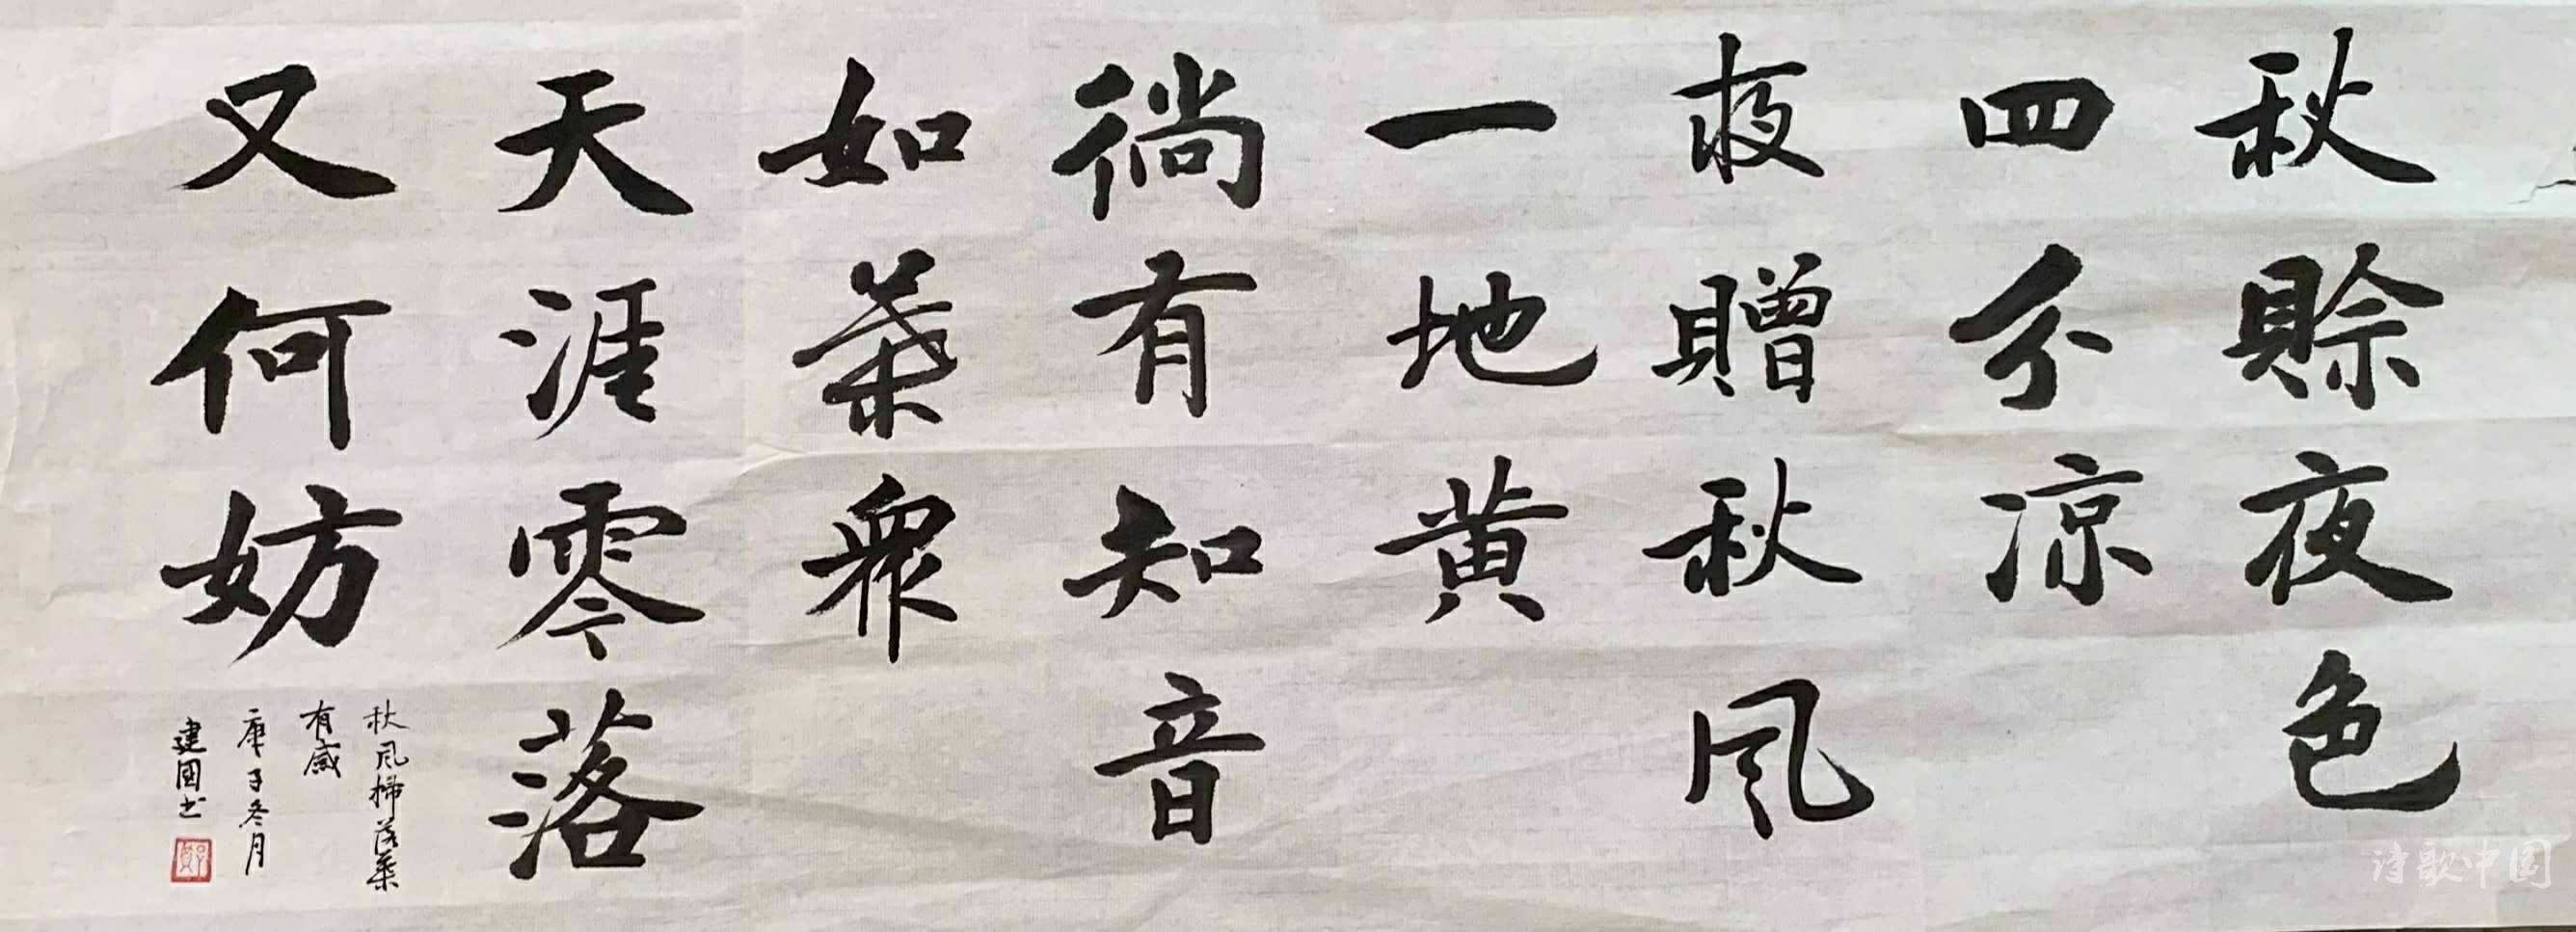 秋賒夜色
四分凉
夜贈秋風
一地黄
徜有知音
如葉眾
天涯零落
又何妨
秋风掃落葉
有感
庚子冬月
建國书
诗歌中国